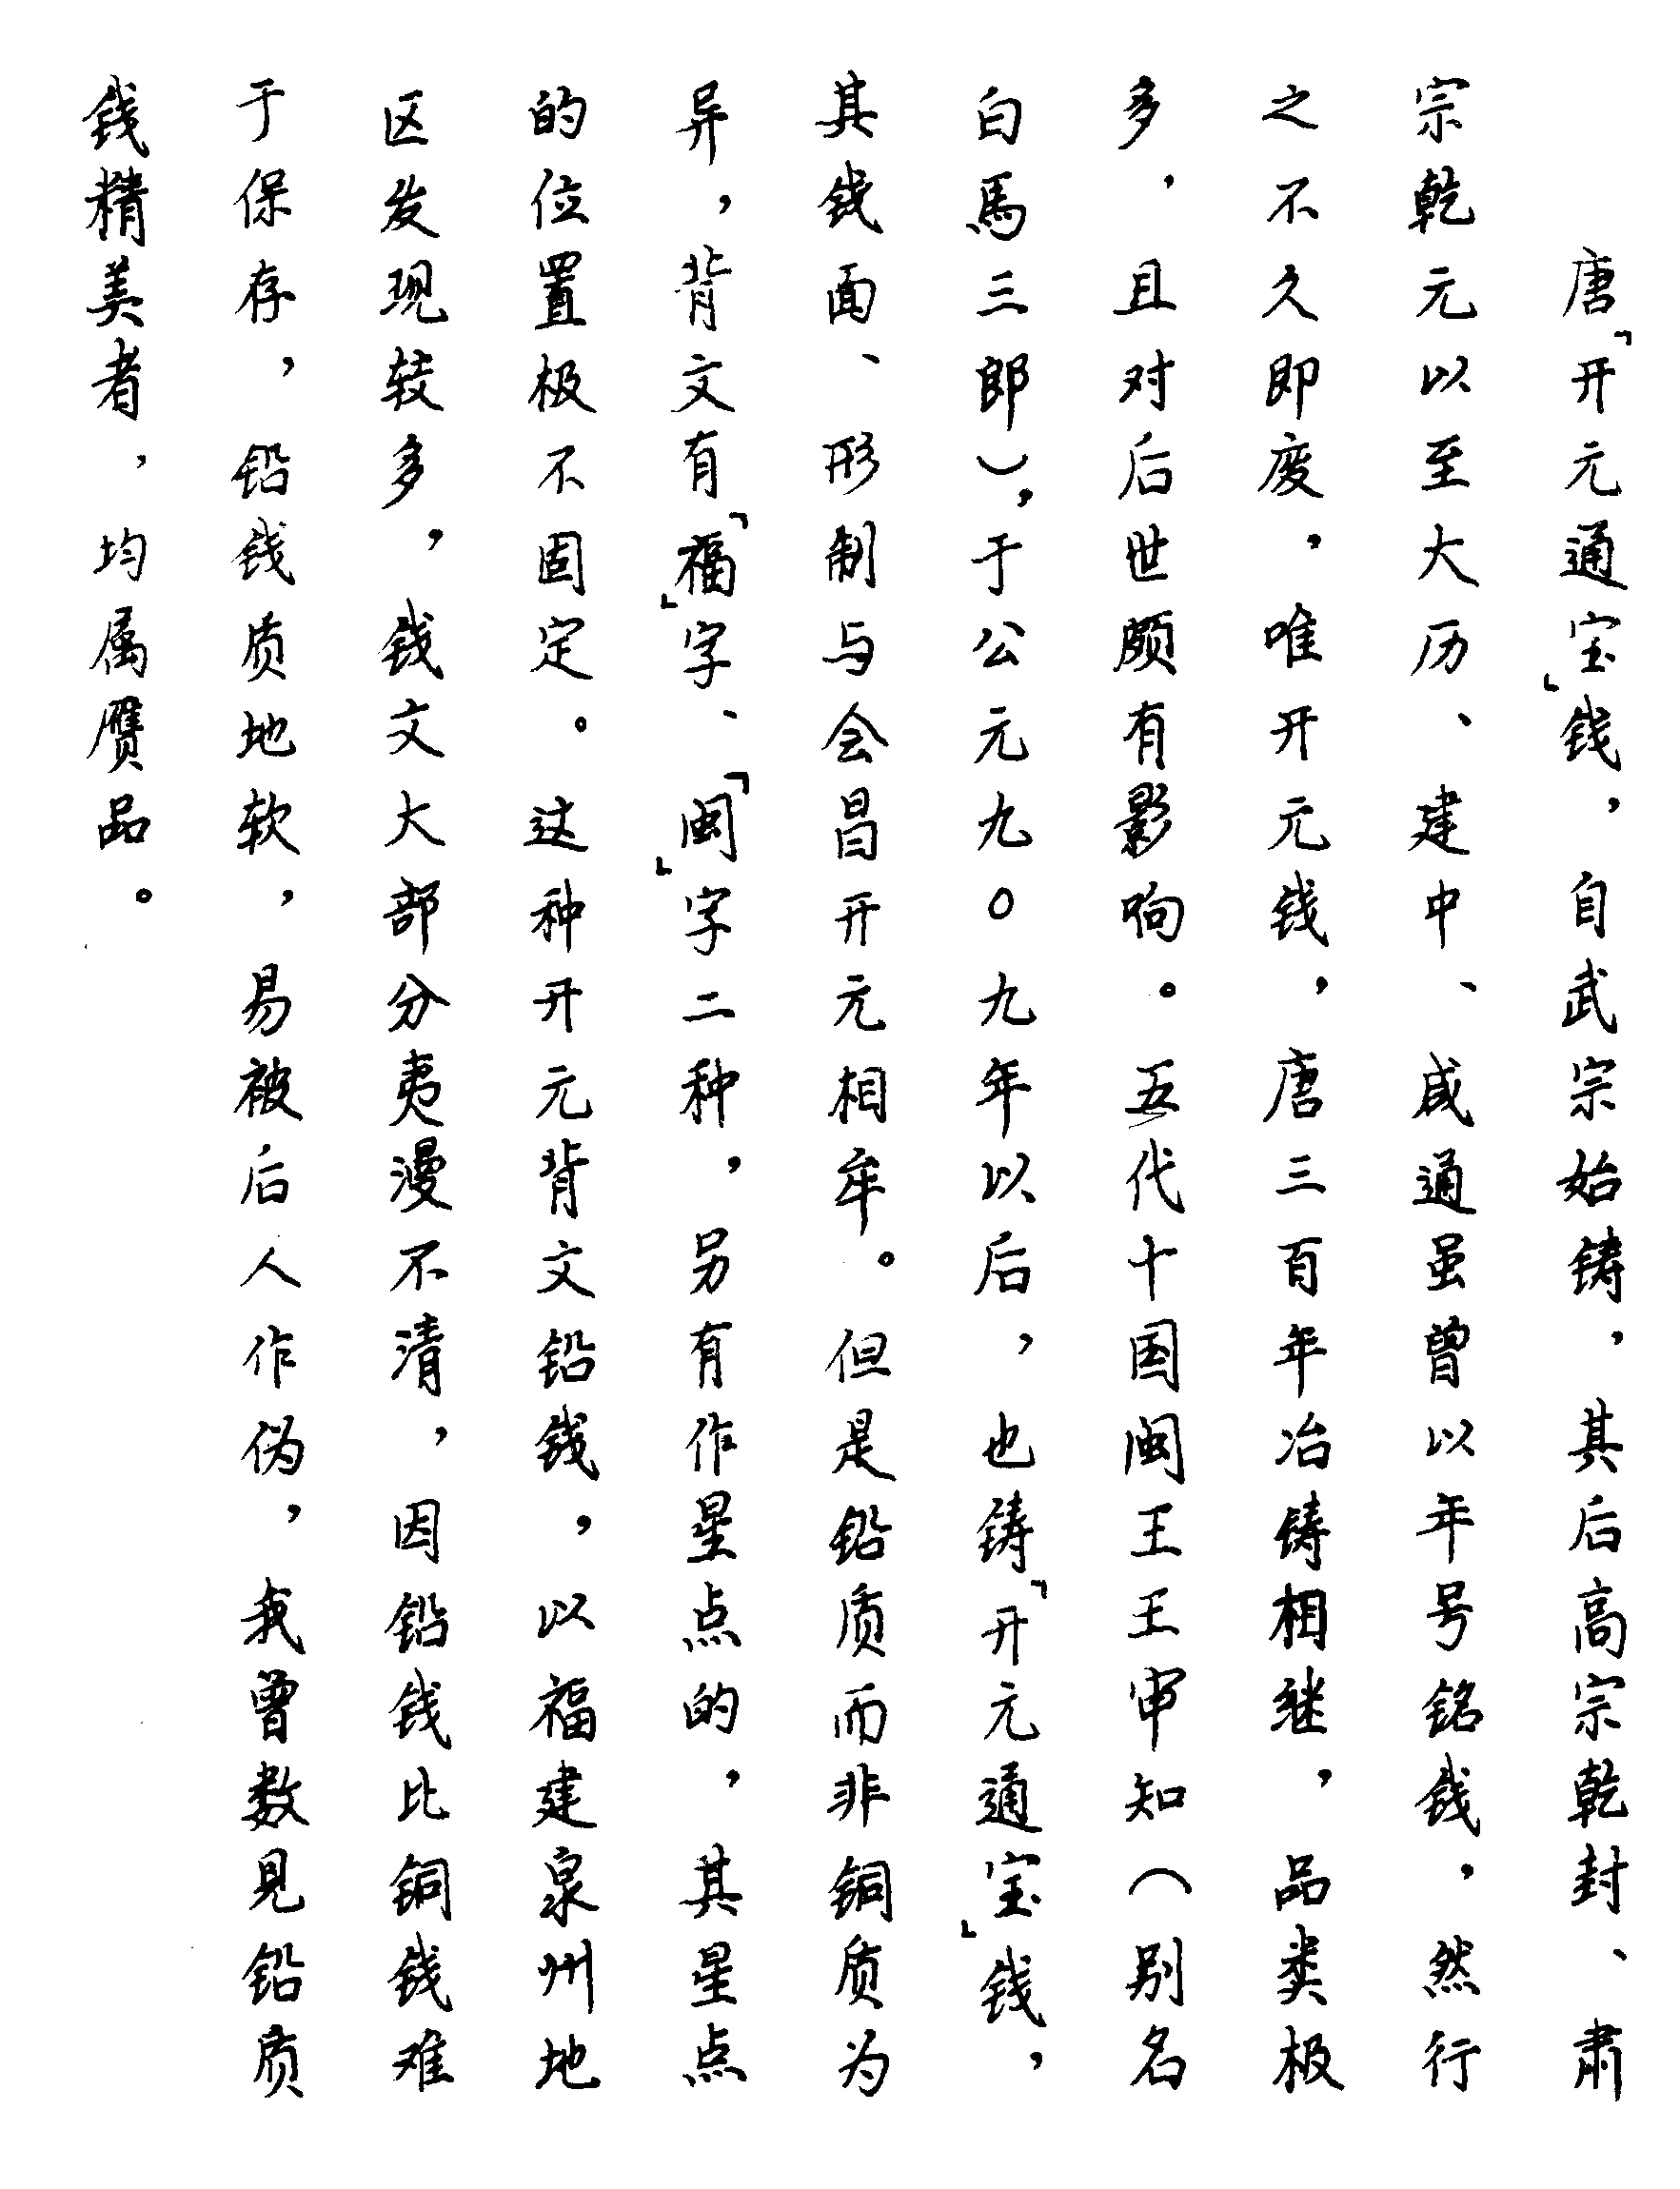 唐「开元通宝」钱，自武宗始铸，其后高宗乾封、肃
宗乾元以至大历、建中、咸通虽曾以年号铭钱，然行
之不久即废，唯开元钱，唐三百年冶铸相继，品类极
多，且对后世颇有影响。五代十国闽王王审知（别名
白馬三郎），于公元九〇九年以后，也铸「开元通宝」钱，
其钱面、形制与会昌开元相牟。但是铅质而非铜质为
异，背文有「福」字、「闽」字二种，另有作星点的，其星点
的位置极不固定。这种开元背文铅钱，以福建泉州地
区发现较多，钱文大部分夷漫不清，因铅钱比铜钱难
于保存，铅钱质地软，易被后人作伪，我曾数见铅质
钱精美者，均属赝品。